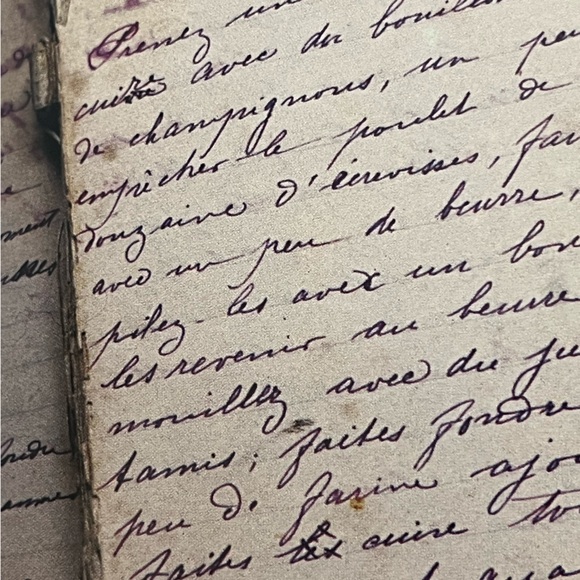 Prenez un
cuire avec du bouillon
de champignons, un peu
empêcher le poulet de
douzaine d'écrevisses, fai
avec un peu de beurre,
pilez-les avec un bon
les revenir au beurre
mouillez avec du ju
tamis; faites fondre
peu d. farine ajou
faites cuire to
ment
ondre